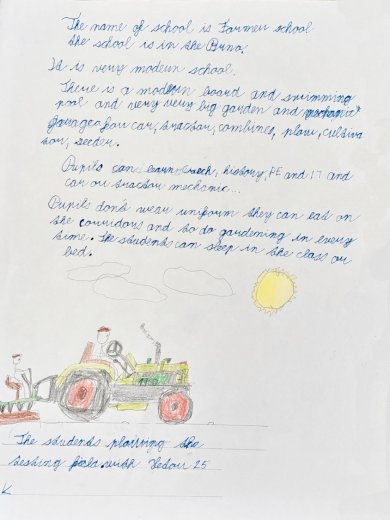 The name of school is Farmer school
the school is in the Brno.
Id is very modern school.
There is a modern board and swimming
pool and very very big garden and mechanic
garages for car, tractor, combines, plow, cultiva
tor, seeder.
Pupils can learn Czech, history, PE and IT and
car or tractor mechanic...
Pupils don't wear uniform they can eat on
the corridors and to do gardening in every
time. The students can sleep in the class or
bed.
The students planning the
testing field with Zetor 25